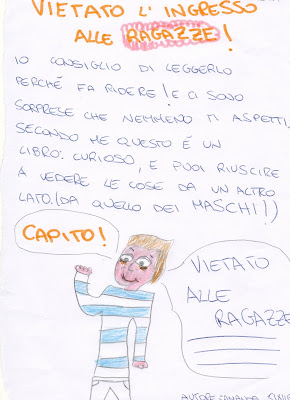 VIETATO L'INGRESSO
ALLE RAGAZZE!
IO CONSIGLIO DI LEGGERLO
PERCHÉ FA RIDERE! E CI SONO
SORPRESE CHE NEMMENO TI ASPETTI,
SECONDO ME QUESTO É UN
LIBRO: CURIOSO, E PUOI RIUSCIRE
A VEDERE LE COSE DA UN ALTRO
LATO. (DA QUELLO DEI MASCHI!)
CAPITO!
VIETATO
ALLE
RAGAZZE
AUTORE